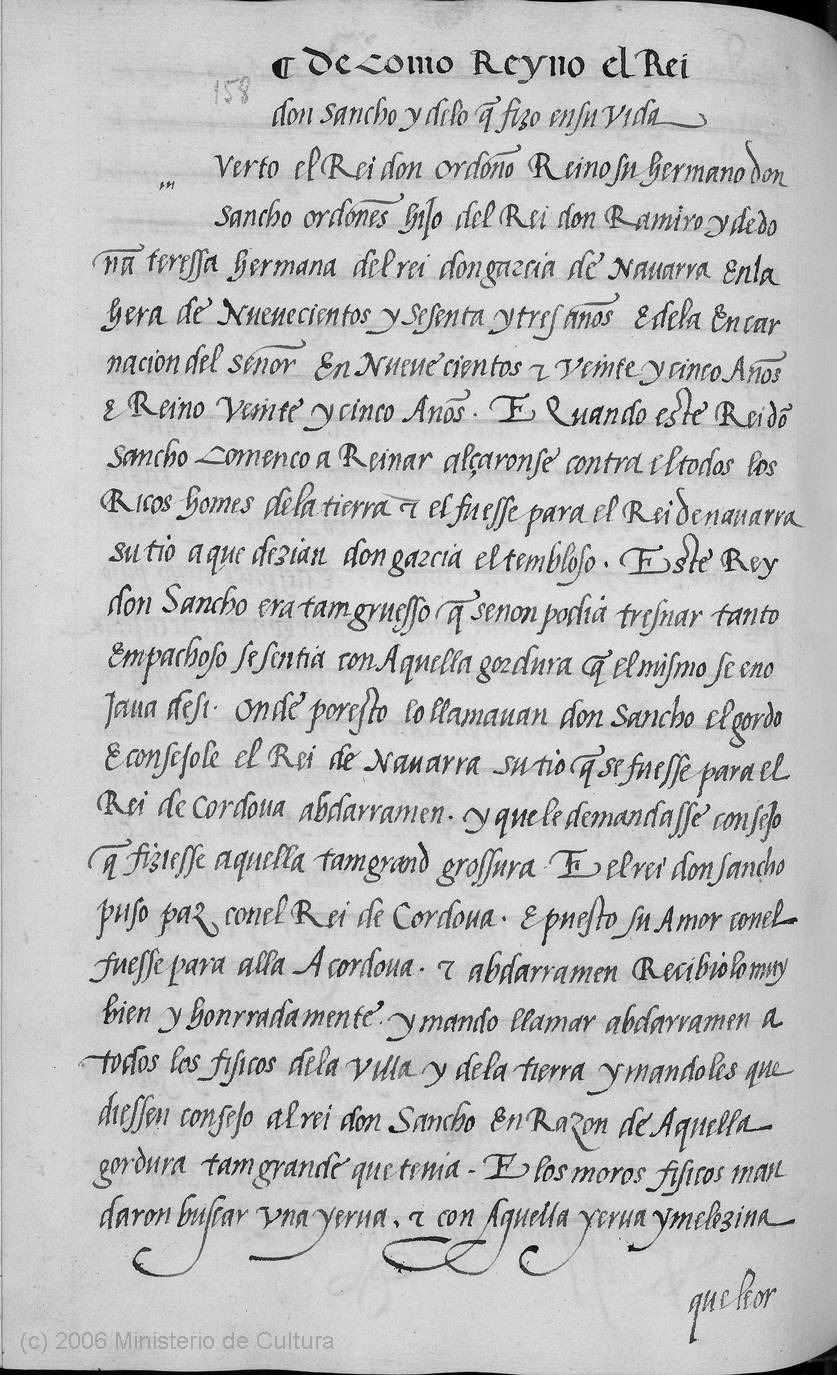 ¶ De Como Reyno el Rei
158
don Sancho y delo q̃ fizo en su Vida
m
Verto el Rei don ordoño Reino su hermano don
Sancho ordoñes hijo del Rei don Ramiro y de do
ña teressa hermana del rei don garcia de Nauarra En la
hera de Nueuecientos y Sesenta y tres años E dela Encar
nacion del señor En Nueue cientos & Veinte y cinco Años
E Reino Veinte y cinco Años. E Quando este Rei dõ
Sancho Comenco a Reinar alçaronse contra el todos los
Ricos homes dela tierra & el fuesse para el Rei de nauarra
su tio a que dezian don garcia el tembloso. Este Rey
don Sancho era tam gruesso q̃ se non podia tresnar tanto
Empachoso se sentia con Aquella gordura q̃ el mismo se eno
Jaua de si. Onde por esto lo llamauan don Sancho el gordo
E consejole el Rei de Nauarra su tio q̃ se fuesse para el
Rei de Cordoua abdarramen. y que le demandasse consejo
q̃ fiziesse a quella tam grand grossura. E el rei don sancho
puso paz con el Rei de Cordoua. E puesto su Amor con el
fuesse para alla A cordoua. & abdarramen Recibiolo muy
bien y honrradamente. y mando llamar abdarramen a
todos los fisicos dela Villa y dela tierra y mandoles que
diessen consejo al rei don Sancho En Razon de Aquella
gordura tam grande que tenia - E los moros fisicos man
daron buscar Vna yerua, & con Aquella yerua y melezina
que le or
(c) 2006 Ministerio de Cultura